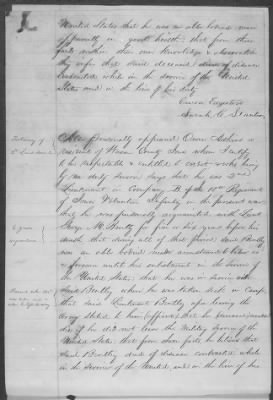 United States that he was an able bodied man
apparently in good health: that from these
facts within their own knowledge & observation
they infer that said deceased of disease
contracted while in the service of the United
States and in the line of his duty
Owen
Sarah C.
Testimony of
2d Lieutenant
Also Personally appeared Owen
resident of County Iowa whom I certify
to be respectable & entitled to credit & who being
by me duly sworn says that he was 2nd
Lieutenant in Company B of the 10th Regiment
of Iowa Volunteer Infantry in the present war
that he was personally acquainted with Lieut
George M. Bently for five or six years before his
death that during all of that period said Bently
was an able bodied man
until his enlistment in the service of
the United States: that he was in service with
said Bently when he was taken sick in camp
that said Lieutenant Bently upon leaving the
Army stated to him (affiant) that he
die if he did not leave the Military service of the
United States that from these facts he believes that
said Bently died of disease contracted while
in the service of the United and in the line of his